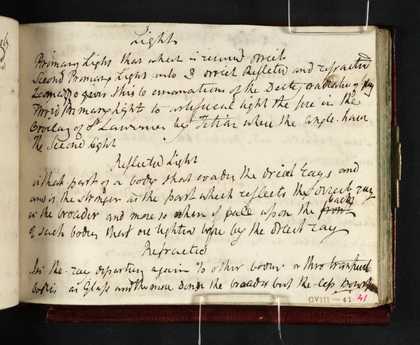 Light
Primary Light that which is recived direct
Second Primary Light into 2 direct Reflected and refracted
Leonardo gives this to emanations of the
Third Primary light to artificial light the fire in the
of St Lawrence by Titian where the angels have
the Second light
Reflected Light
is that part of a body that evades the direct Rays and
and is the stronger as the part which reflects the Direct ray
is the broader and more so when if place upon the back
of such bodies that are lighted before by the Direct ray
Refracted
Is the ray departing again to other bodies or thro tranparent
bodies as Glass and the more dense the broader but the less
CVIII - 41
41